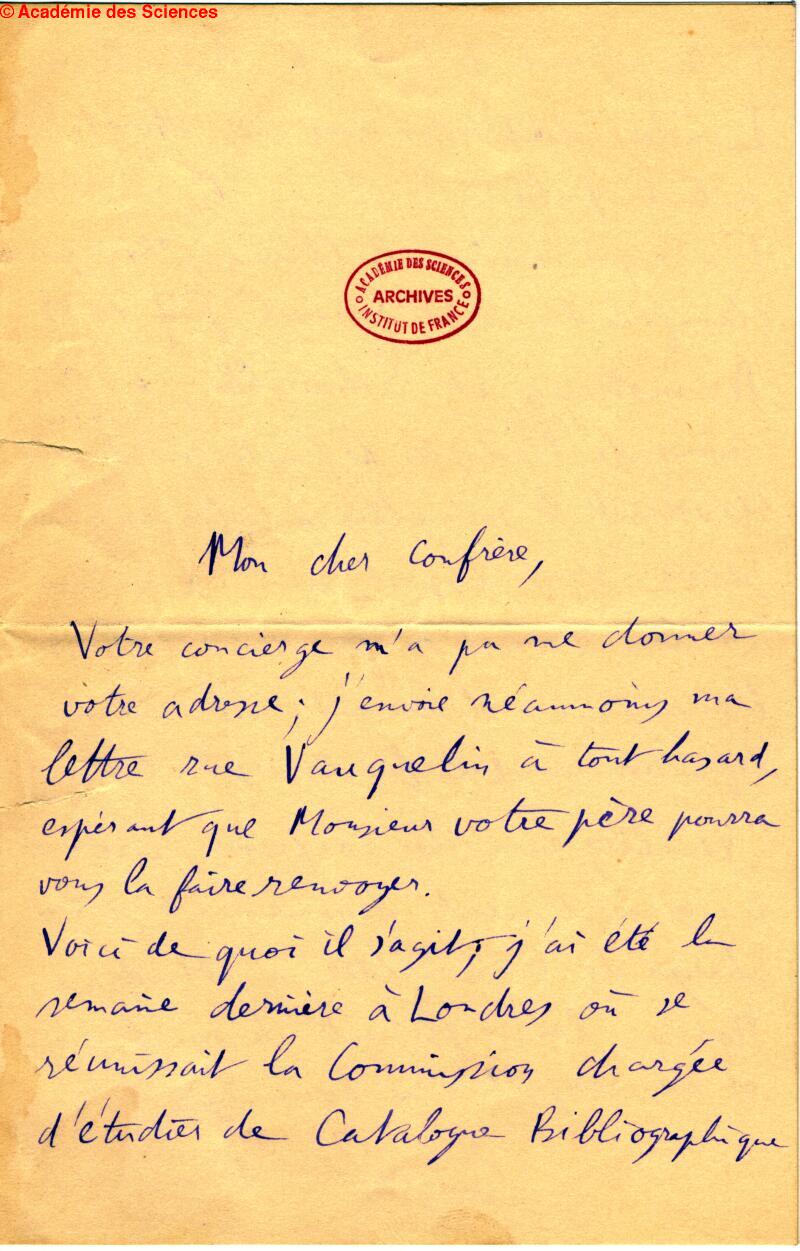 © Académie des Sciences
ACADÉMIE DES SCIENCES
ARCHIVES
INSTITUT DE FRANCE
Mon cher Confrère,
Votre concierge n'a pu me donner
votre adresse; j'envoie néanmoins ma
lettre rue Vauquelin à tout hasard,
espérant que Monsieur votre père pourra
vous la faire renvoyer.
Voici de quoi il s'agit; j'ai été la
semaine dernière à Londres où se
réunissait la Commission chargée
d'étudier de Catalogue Bibliographique